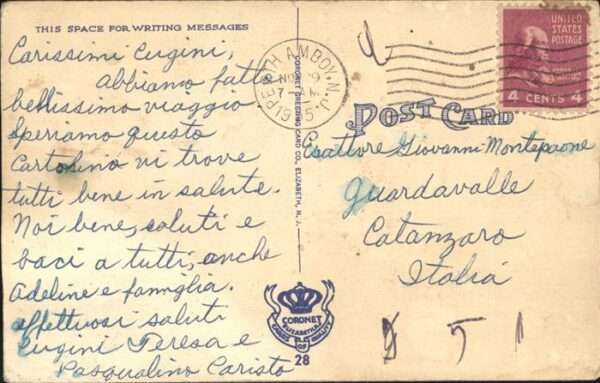 THIS SPACE FOR WRITING MESSAGES
Carissimi Cugini,
Abbiamo fatto
bellissimo viaggio
Speriamo questo
Cartolino vi trove
tutti bene in salute.
Noi bene, saluti e
baci a tutti, anche
Adeline e famiglia.
affettuosi saluti
Cugini Teresa e
Pasqualino Caristo
PERTH AMBOY, N.J.
CORONET GREETING CARD CO., ELIZABETH, N. J.
UNITED
STATES
POSTAGE
4 CENTS 4
POST CARD
Esattore Giovanni Montepaone
Guardavalle
Catanzaro
Italia
CORONET
28
5 1